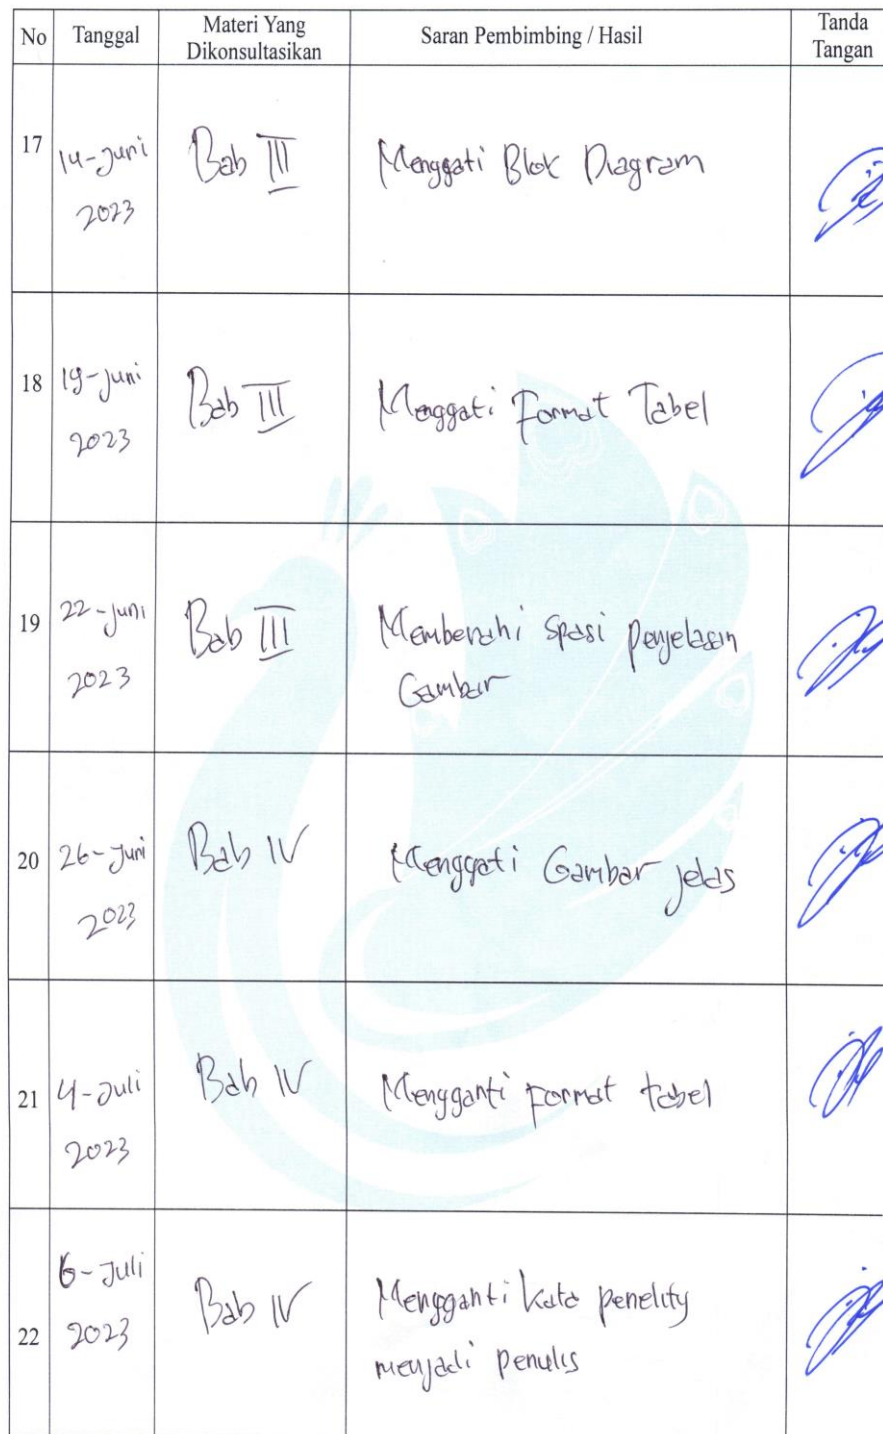 No Tanggal Materi Yang Dikonsultasikan Saran Pembimbing / Hasil Tanda Tangan
17 14-Juni 2023 Bab III Menggati Blok Diagram
18 19-Juni 2023 Bab III Menggati Format Tabel
19 22-Juni 2023 Bab III Membenahi spasi penjelasan
Gambar
20 26-Juni 2023 Bab IV Menggati Gambar jelas
21 4-Juli 2023 Bab IV Mengganti format tabel
22 6-Juli 2023 Bab IV Mengganti kata penelity
menjadi penulis